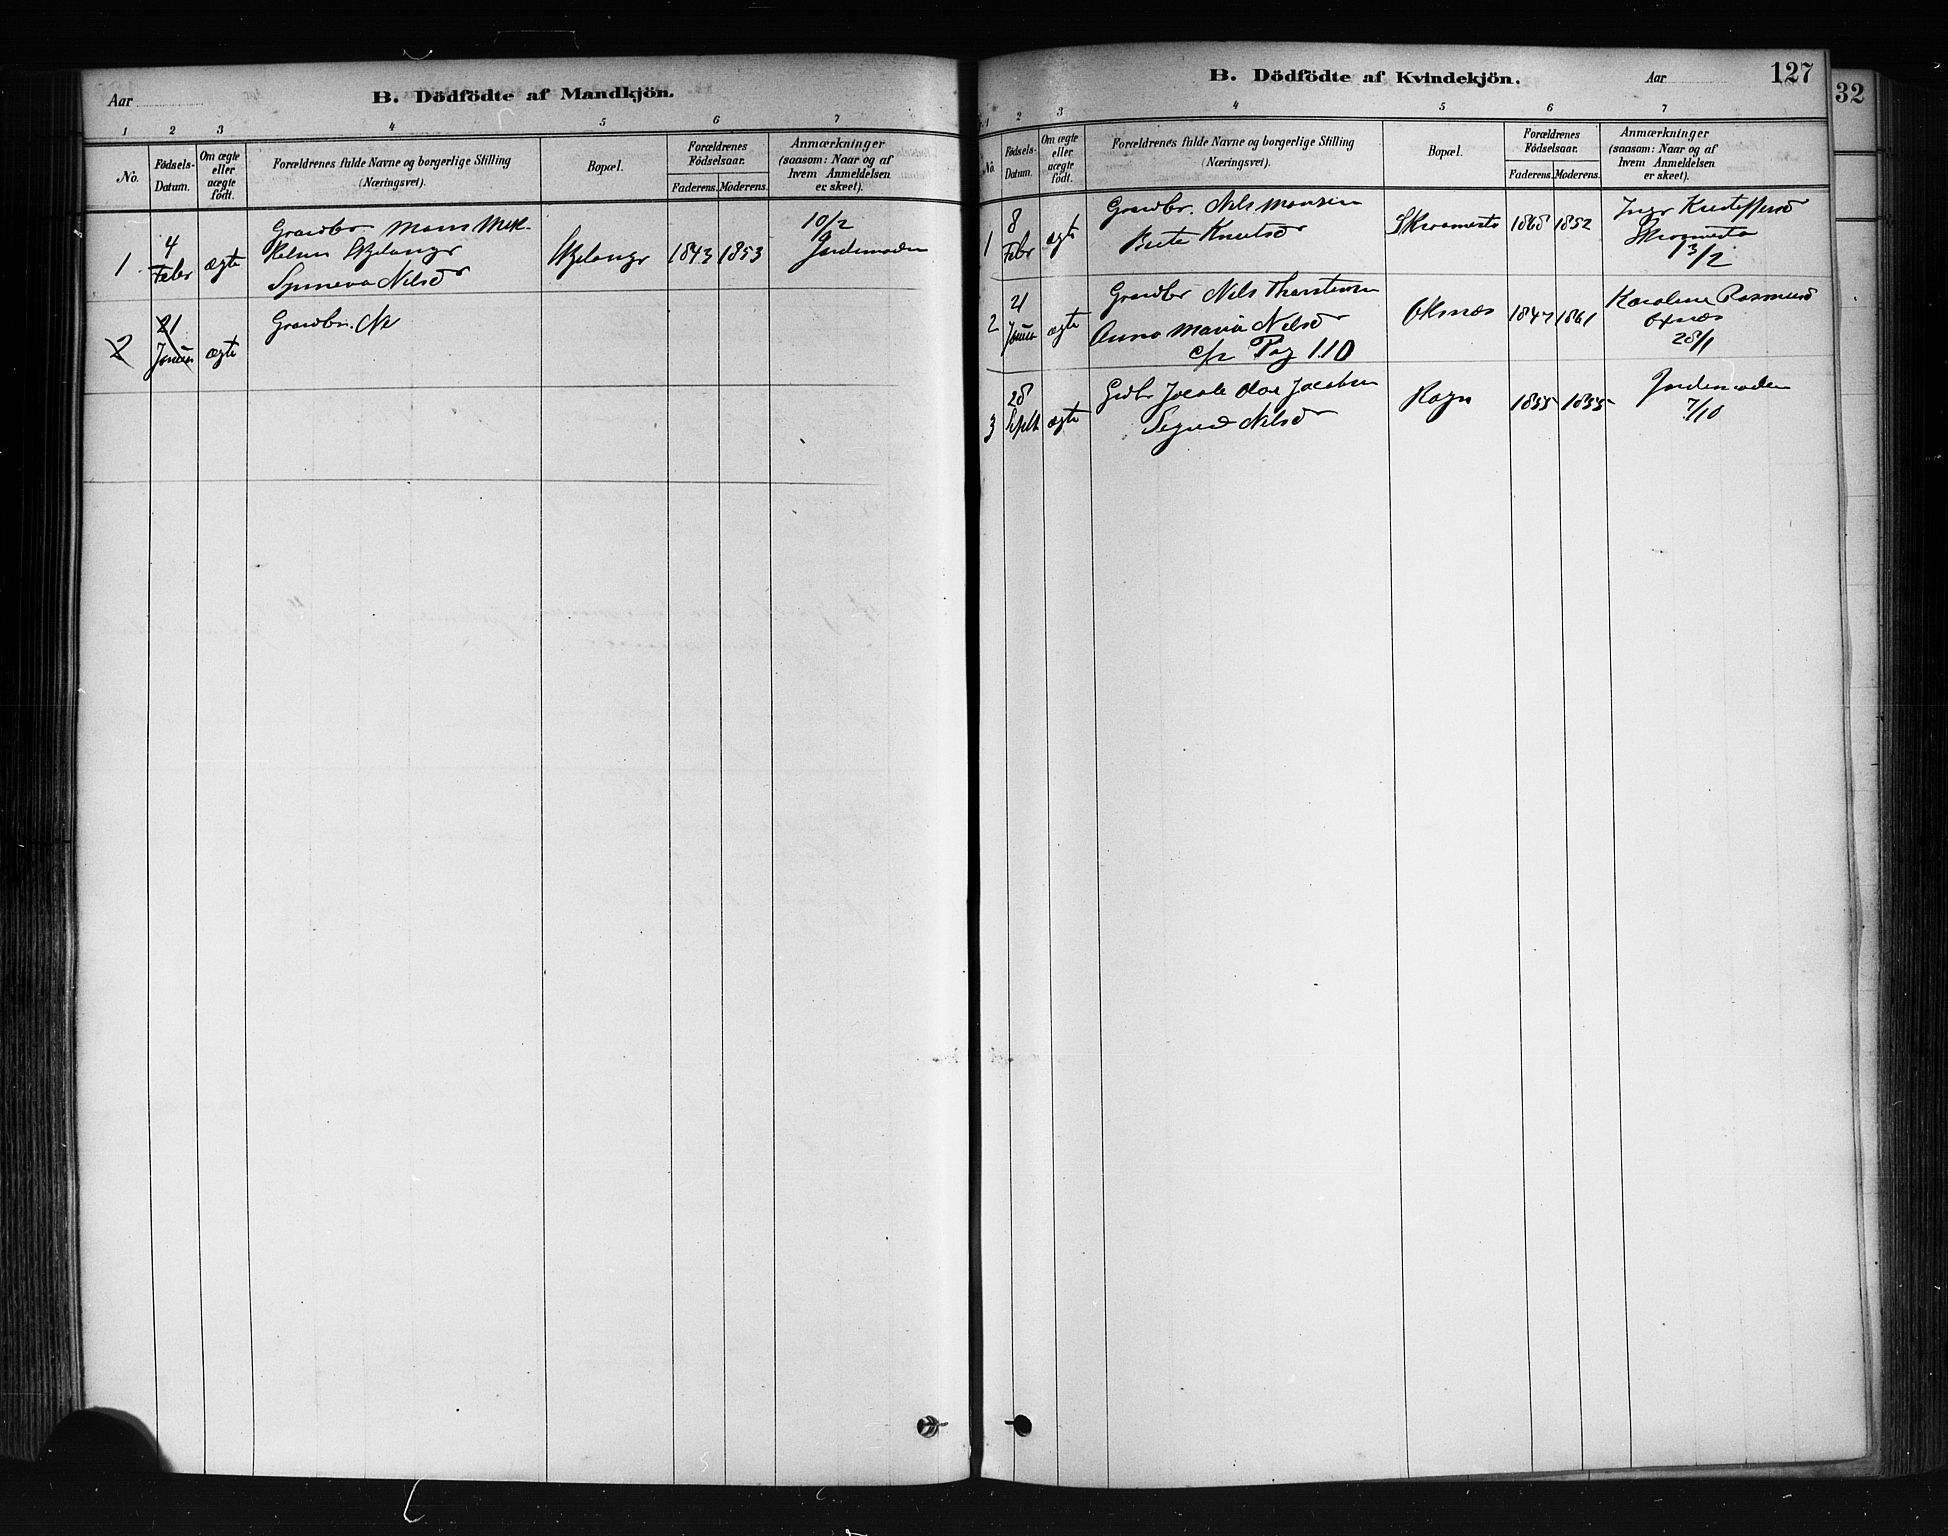 Aar
B. Dödfödte af Mandkjön.
1 2 3 4 5 6 7
No.
Födsels-
Datum.
Om ægte
eller
uægte
født.
Forældrenes fulde Navne og borgerlige Stilling
(Næringsvei).
Bopæl.
Forældrenes
Födselsaar.
Faderens. Moderens.
Anmærkninger
(saasom: Naar og af
hvem Anmeldelsen
er skeet).
1
4
Febr
ægte
Gaardbr. Mons Mik-
kelsen Skjelanger
Synneva Nilsd
Skjelanger
1843
1853
10/2
Jordemoder
2
21
Januar
ægte
Gaardbr. Ne
B. Dödfödte af Kvindekjön.
Aar
127
32
1 2 3 4 5 6 7
No.
Födsels-
Datum.
Om ægte
eller
uægte
født.
Forældrenes fulde Navne og borgerlige Stilling
(Næringsvei).
Bopæl.
Forældrenes
Födselsaar.
Faderens. Moderens.
Anmærkninger
(saasom: Naar og af
hvem Anmeldelsen
er skeet).
1
8
Febr
ægte
Gaardbr. Nils Monsen
Berte Knutsd
1868
1852
13/2
2
21
Januar
ægte
Gaardbr Nils Thorstensen
Anna Maria Nilsd
cfr Pag 110
Oksnæs
1847
1861
Karoline Rasmusd
Oxnæs
28/1
3
28
Septb
ægte
Grdbr Jacob Olai Jacobsen
Sigrid Nilsd
Rogn
1855
1855
Jordemoder
7/10